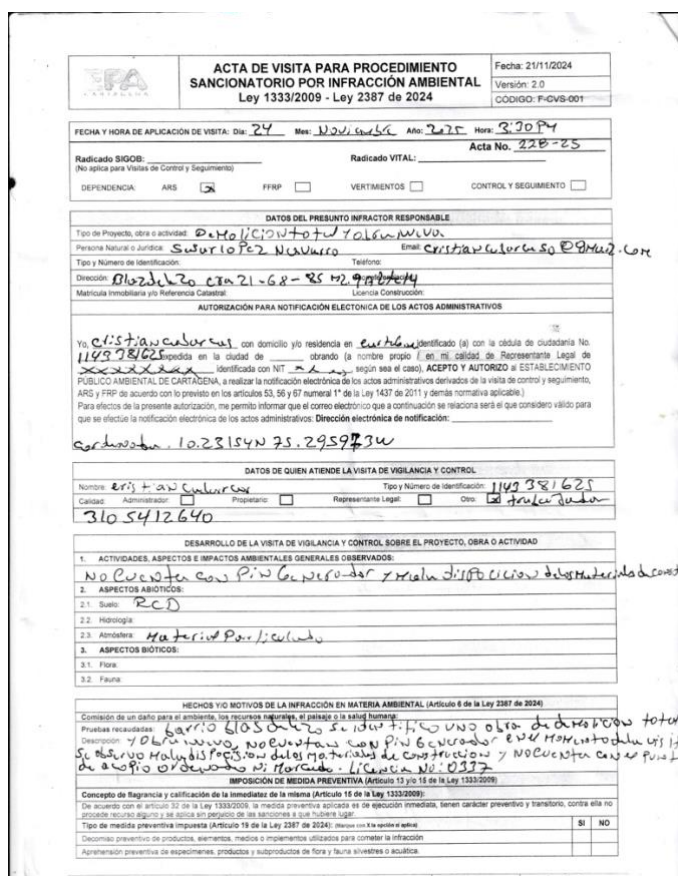 EPA
CARTAGENA
ACTA DE VISITA PARA PROCEDIMIENTO
SANCIONATORIO POR INFRACCIÓN AMBIENTAL
Ley 1333/2009 - Ley 2387 de 2024
Fecha: 21/11/2024
Versión: 2.0
CÓDIGO: F-CVS-001
FECHA Y HORA DE APLICACIÓN DE VISITA: Día: 24 Mes: Noviembre Año: 2025 Hora: 3:30 PM
Acta No. 228-25
Radicado SIGOB: Radicado VITAL:
(No aplica para Visitas de Control y Seguimiento)
DEPENDENCIA: ARS X FFRP VERTIMIENTOS CONTROL Y SEGUIMIENTO
DATOS DEL PRESUNTO INFRACTOR RESPONSABLE
Tipo de Proyecto, obra o actividad: Demolicion total y obra nueva.
Persona Natural o Jurídica: Lopez Navarro Email:
Tipo y Número de Identificación: Teléfono:
Dirección: Blas de Lezo cra 21-68-85 Mz.9
Matrícula Inmobiliaria y/o Referencia Catastral: Licencia Construcción:
AUTORIZACIÓN PARA NOTIFICACIÓN ELECTONICA DE LOS ACTOS ADMINISTRATIVOS
Yo, cristian con domicilio y/o residencia en identificado (a) con la cédula de ciudadanía No.
1143381625 expedida en la ciudad de obrando (a nombre propio / en mi calidad de Representante Legal de
xxxxxxx identificada con NIT según sea el caso), ACEPTO Y AUTORIZO al ESTABLECIMIENTO
PÚBLICO AMBIENTAL DE CARTAGENA, a realizar la notificación electrónica de los actos administrativos derivados de la visita de control y seguimiento,
ARS y FRP de acuerdo con lo previsto en los artículos 53, 56 y 67 numeral 1° de la Ley 1437 de 2011 y demás normativa aplicable.)
Para efectos de la presente autorización, me permito informar que el correo electrónico que a continuación se relaciona será el que considero válido para
que se efectúe la notificación electrónica de los actos administrativos: Dirección electrónica de notificación:
10.23154N 75.295973W
DATOS DE QUIEN ATIENDE LA VISITA DE VIGILANCIA Y CONTROL
Nombre: cristian Tipo y Número de Identificación: 1143381625
Calidad: Administrador: Propietario: Representante Legal: Otro: X trabajador
3105412640
DESARROLLO DE LA VISITA DE VIGILANCIA Y CONTROL SOBRE EL PROYECTO, OBRA O ACTIVIDAD
1. ACTIVIDADES, ASPECTOS E IMPACTOS AMBIENTALES GENERALES OBSERVADOS:
No cuenta con Pin Generador y mala disposicion de los Materiales de const
2. ASPECTOS ABIÓTICOS:
2.1. Suelo: RCD
2.2. Hidrología:
2.3. Atmósfera: Material Particulado
3. ASPECTOS BIÓTICOS:
3.1. Flora:
3.2. Fauna:
HECHOS Y/O MOTIVOS DE LA INFRACCIÓN EN MATERIA AMBIENTAL (Artículo 6 de la Ley 2387 de 2024)
Comisión de un daño para el ambiente, los recursos naturales, el paisaje o la salud humana:
Pruebas recaudadas: barrio blas de lezo se identifico una obra de demolicion total
Descripción: y obra nueva, no cuentan con Pin Generador en el momento de la visi
Se observo mala disposicion de los materiales de construccion y no cuenta con el punt
de acopio ordenado ni Marcado. Licencia No: 0337
IMPOSICIÓN DE MEDIDA PREVENTIVA (Artículo 13 y/o 15 de la Ley 1333/2009)
Concepto de flagrancia y calificación de la inmediatez de la misma (Artículo 15 de la Ley 1333/2009):
De acuerdo con el artículo 32 de la Ley 1333/2009, la medida preventiva aplicada es de ejecución inmediata, tienen carácter preventivo y transitorio, contra ella no
procede recurso alguno y se aplica sin perjuicio de las sanciones a que hubiere lugar.
Tipo de medida preventiva impuesta (Artículo 19 de la Ley 2387 de 2024): (Marque con X la opción si aplica) SI NO
Decomiso preventivo de productos, elementos, medios o implementos utilizados para cometer la infracción
Aprehensión preventiva de especímenes, productos y subproductos de flora y fauna silvestres o acuática.